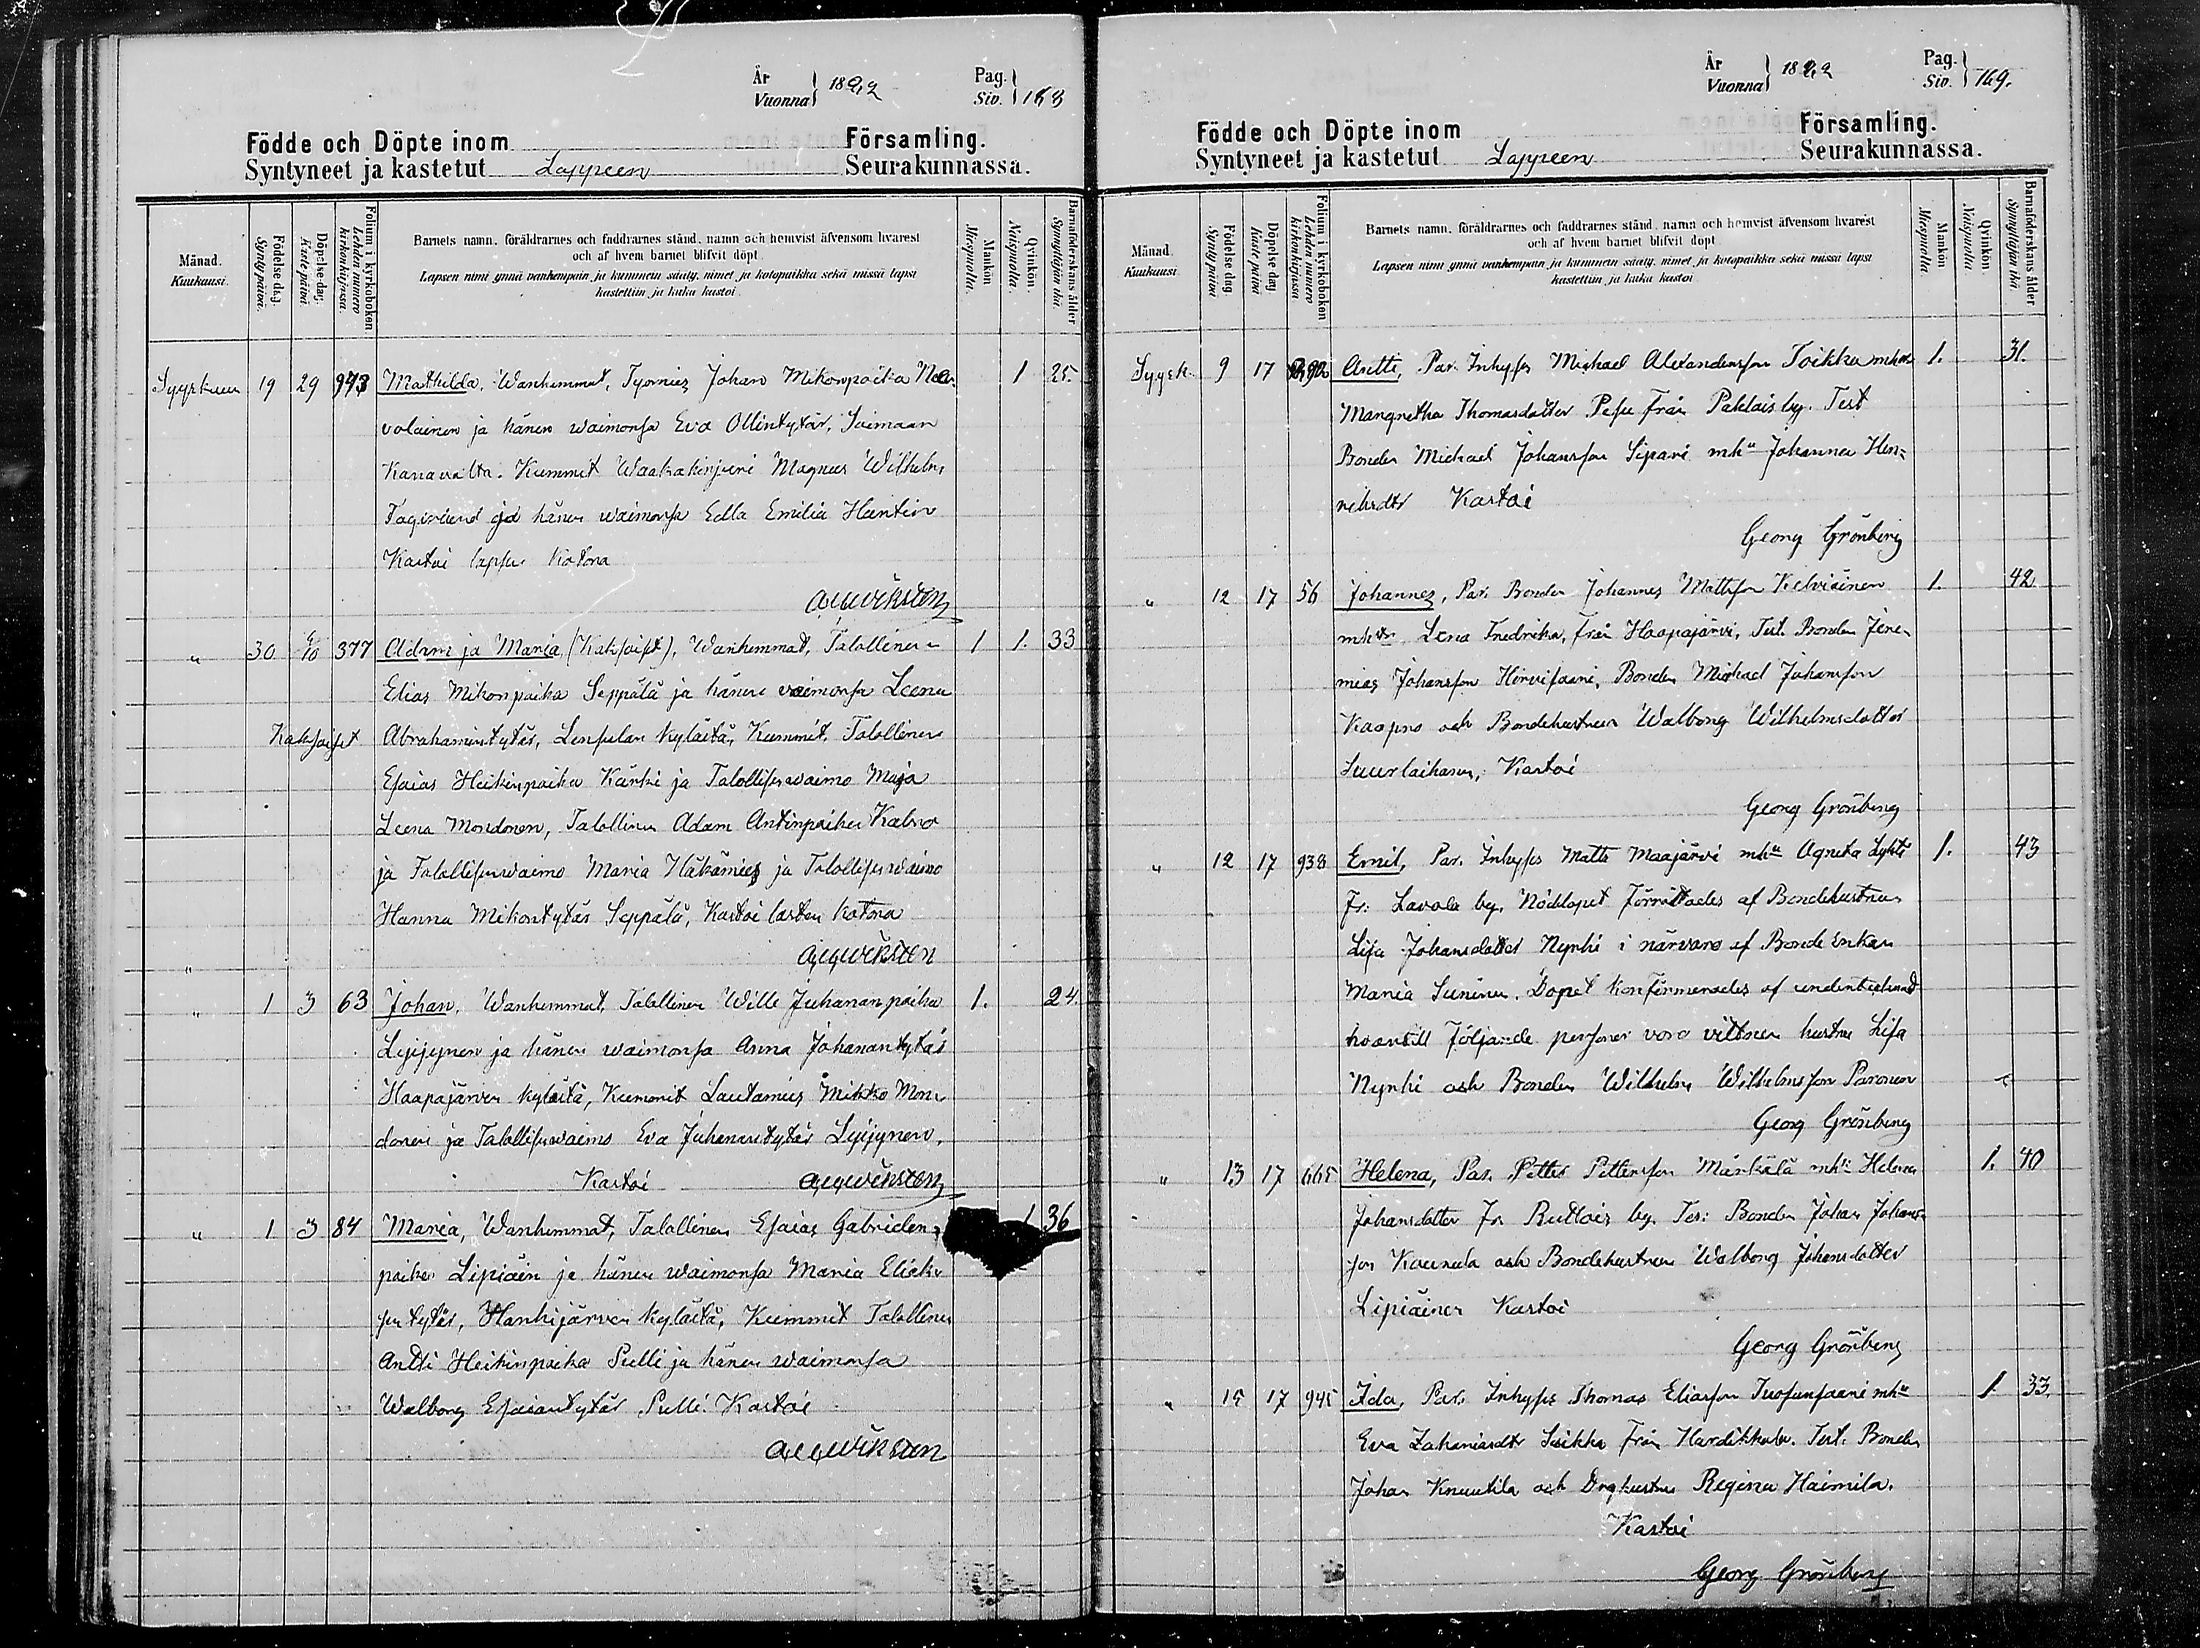 År
Vuonna
1892
Pag.
Siv.
168
Födde och Döpte inom Församling.
Syntyneet ja kastetut Lappeen Seurakunnassa.
Månad. Kuukausi.
Födelse dag. Synty päivä.
Döpelse dag. Kaste päivä.
Folium i kyrkoboken Lehden numero kirkonkirjassa.
Barnets namn, föräldrarnes och faddrarnes stånd, namn och hemvist äfvensom hvarest
och af hvem barnet blifvit döpt.
Lapsen nimi ynnä vanhempain ja kummein sääty, nimet ja kotopaikka sekä missä lapsi
kastettiin ja kuka kastoi.
Mankön Miespuolta.
Qvinkön. Naispuolta.
Barnaföderskans ålder Synnyttäjän ikä.
Syyskuu 19 29 973 Mathilda, Wanhemmat, Tyomies Johan Mikonpoika 1 25
volainen ja hänen waimonsa Eva Ollintytär, Saimaan
Kanavalta. Kummit Magnus Wilhelm
ja hänen waimonsa Edla Emilia
Kastoi lapsen kotona
" 30 377 Adam ja Maria (Kaksoiset), Wanhemmat, Talollinen 1 1. 33
Elias Mikonpoika Seppälä ja hänen waimonsa Leena
Kaksoiset Abrahamintytär, kylästä, Kummit, Talollinen
Esaias Heikinpoika Kärki ja Talollisenwaimo Maja
Leena Mondonen, Talollinen Adam Antinpoika
ja Talollisenwaimo Maria Häkämies ja Talollisenwaimo
Hanna Mikontytär Seppälä, Kastoi lasten kotona
"
" 1 3 63 Johan, Wanhemmat, Talollinen Wille Juhananpoika 1. 24.
Lyijynen ja hänen waimonsa Anna Johanantytär
Haapajärven kylästä, Kummit Lautamies Mikko Mon-
donen ja Talollisenwaimo Eva Juhanantytär Lyijynen,
Kastoi
" 1 3 84 Maria, Wanhemmat, Talollinen Esaias Gabrielen- 1 36
poika Lipiäin ja hänen waimonsa Maria
tytär, Hanhijärven kylästä, Kummit Talollinen
Antti Heikinpoika Pulli ja hänen waimonsa
Walborg Esaiantytär Pulli. Kastoi
År
Vuonna
1892
Pag.
Siv.
169.
Födde och Döpte inom Församling.
Syntyneet ja kastetut Lappeen Seurakunnassa.
Månad. Kuukausi.
Födelse dag Synty päivä
Döpelse dag Kaste päivä
Folium i kyrkoboken Lehden numero kirkonkirjassa
Barnets namn, föräldrarnes och faddrarnes stånd, namn och hemvist äfvensom hvarest
och af hvem barnet blifvit döpt
Lapsen nimi ynnä vanhempain ja kummein sääty, nimet ja kotopaikka sekä missä lapsi
kastettiin ja kuka kastoi
Mankön Miespuolta
Qvinkön Naispuolta
Barnaföderskans ålder Synnyttäjän ikä.
Syysk. 9 17 Antti, Par. Inhyses Michael Alexandersson Toikka 1. 31
Margretha Thomasdotter från by. Test
Bonden Michael Johansson Sipari mhu Johanna Hen-
riksdtr Kastoi
Georg Grönberg
" 12 17 56 Johannes, Par. Bonden Johannes Mattsson Kelviäinen 1. 42
Lena Fredrika, från Haapajärvi, Test. Bonden Jere-
mias Johansson Hirvisaari, Bonden Michael Johansson
och Bondehustrun Walborg Wilhelmsdotter
Kastoi
Georg Grönberg
" 12 17 938 Emil, Par. Inhyses Matts Maajärvi mhu Agneta 1. 43
Fr. Lavola by. Nöddopet förrättades af Bondehustrun
Lisa Johansdotter Nyrhi i närvaro af Bonde Enkan
Maria Suninen. Dopet konfirmerades af undertecknad
hvartill följande personer voro vittnen hustru Lisa
Nyrhi och Bonden Wilhelm Wilhelmsson Paronen
Georg Grönberg
" 13 17 665 Helena, Par. Petter Pettersson Märkälä mhu Helena 1. 40
Johansdotter fr Ruttois by. Tes: Bonden Johan Johans-
son Kaunela och Bondehustrun Walborg Johansdotter
Lipiäinen Kastoi
Georg Grönberg
" 15 17 945 Ida, Par. Inhyses Thomas Eliasson Tuosunsaari mhu 1. 33
Eva Zachariasdtr Suikka från Hardikkala. Test. Bonden
Johan Knuutila och Drghustru Regina Haimila.
Kastoi
Georg Grönberg